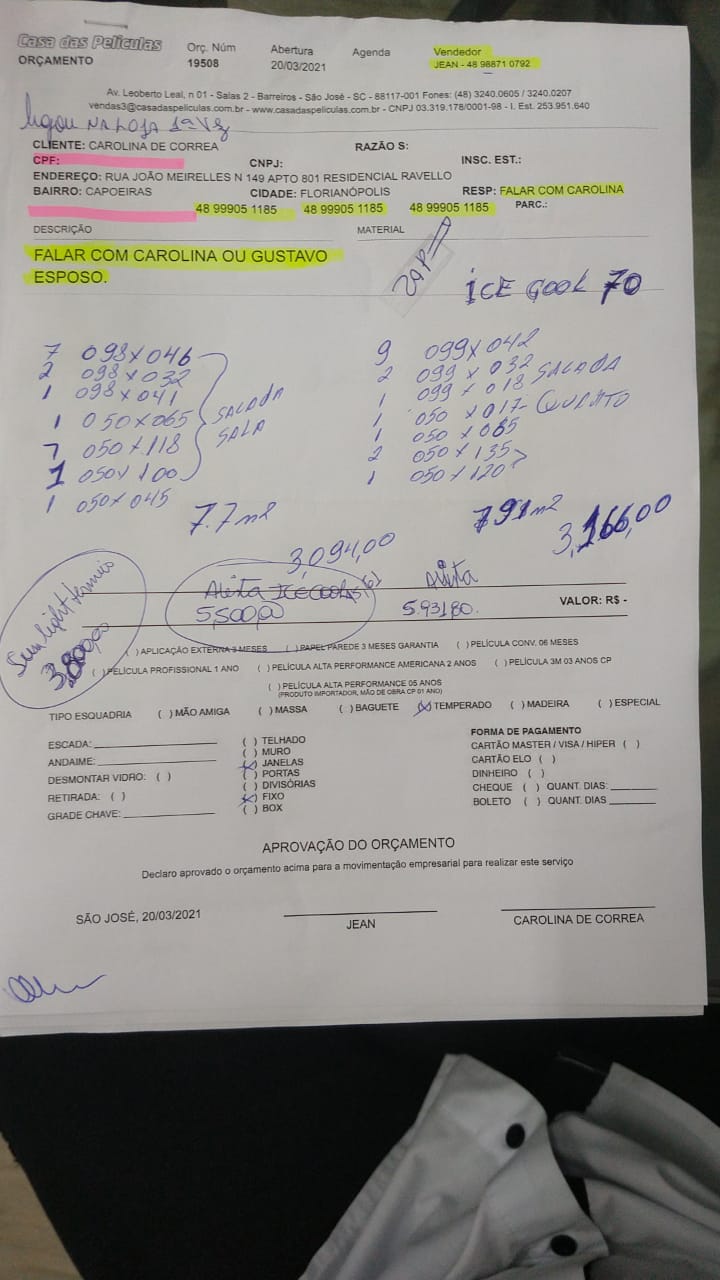 Casa das Películas
ORÇAMENTO
Orç. Núm
19508
Abertura
20/03/2021
Agenda
Vendedor
JEAN - 48 98871 0792
Av. Leoberto Leal, n 01 - Salas 2 - Barreiros - São José - SC - 88117-001 Fones: (48) 3240.0605 / 3240.0207
vendas3@casadaspeliculas.com.br - www.casadaspeliculas.com.br - CNPJ 03.319.178/0001-98 - I. Est. 253.951.640
ligou NA LOJA 1ª VZ
CLIENTE: CAROLINA DE CORREA RAZÃO S:
CPF: CNPJ: INSC. EST.:
ENDEREÇO: RUA JOÃO MEIRELLES N 149 APTO 801 RESIDENCIAL RAVELLO
BAIRRO: CAPOEIRAS CIDADE: FLORIANÓPOLIS RESP: FALAR COM CAROLINA
48 99905 1185 48 99905 1185 48 99905 1185 PARC.:
DESCRIÇÃO MATERIAL
FALAR COM CAROLINA OU GUSTAVO
ESPOSO.
ZAP
ICE COOL 70
7 098X046
2 098X032
1 098X041
1 050X065
7 050X118
1 050X100
1 050X045
SACADA
SALA
7.7m2
3,094,00
9 099X042
2 099X032
1 099X018 SACADA
1 050X017 - QUARTO
1 050X085
2 050X135
1 050X120
7,91m2
3,166,00
Sun light térmico
3,800,00
5,500,00
5.931,80.
VALOR: R$ -
( ) APLICAÇÃO EXTERNA 3 MESES ( ) PAPEL PAREDE 3 MESES GARANTIA ( ) PELÍCULA CONV. 06 MESES
( ) PELÍCULA PROFISSIONAL 1 ANO ( ) PELÍCULA ALTA PERFORMANCE AMERICANA 2 ANOS ( ) PELÍCULA 3M 03 ANOS CP
( ) PELÍCULA ALTA PERFORMANCE 05 ANOS
(PRODUTO IMPORTADOR, MÃO DE OBRA CP 01 ANO)
TIPO ESQUADRIA ( ) MÃO AMIGA ( ) MASSA ( ) BAGUETE (X) TEMPERADO ( ) MADEIRA ( ) ESPECIAL
ESCADA:
ANDAIME:
DESMONTAR VIDRO: ( )
RETIRADA: ( )
GRADE CHAVE:
( ) TELHADO
( ) MURO
(X) JANELAS
( ) PORTAS
( ) DIVISÓRIAS
(X) FIXO
( ) BOX
FORMA DE PAGAMENTO
CARTÃO MASTER / VISA / HIPER ( )
CARTÃO ELO ( )
DINHEIRO ( )
CHEQUE ( ) QUANT. DIAS:
BOLETO ( ) QUANT. DIAS
APROVAÇÃO DO ORÇAMENTO
Declaro aprovado o orçamento acima para a movimentação empresarial para realizar este serviço
SÃO JOSÉ, 20/03/2021
JEAN
CAROLINA DE CORREA